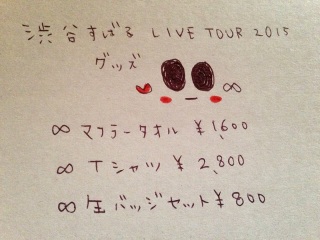 渋谷すばる LIVE TOUR 2015
グッズ
∞ マフラータオル ¥1,600
∞ Tシャツ ¥2,800
∞ 缶バッジセット ¥800